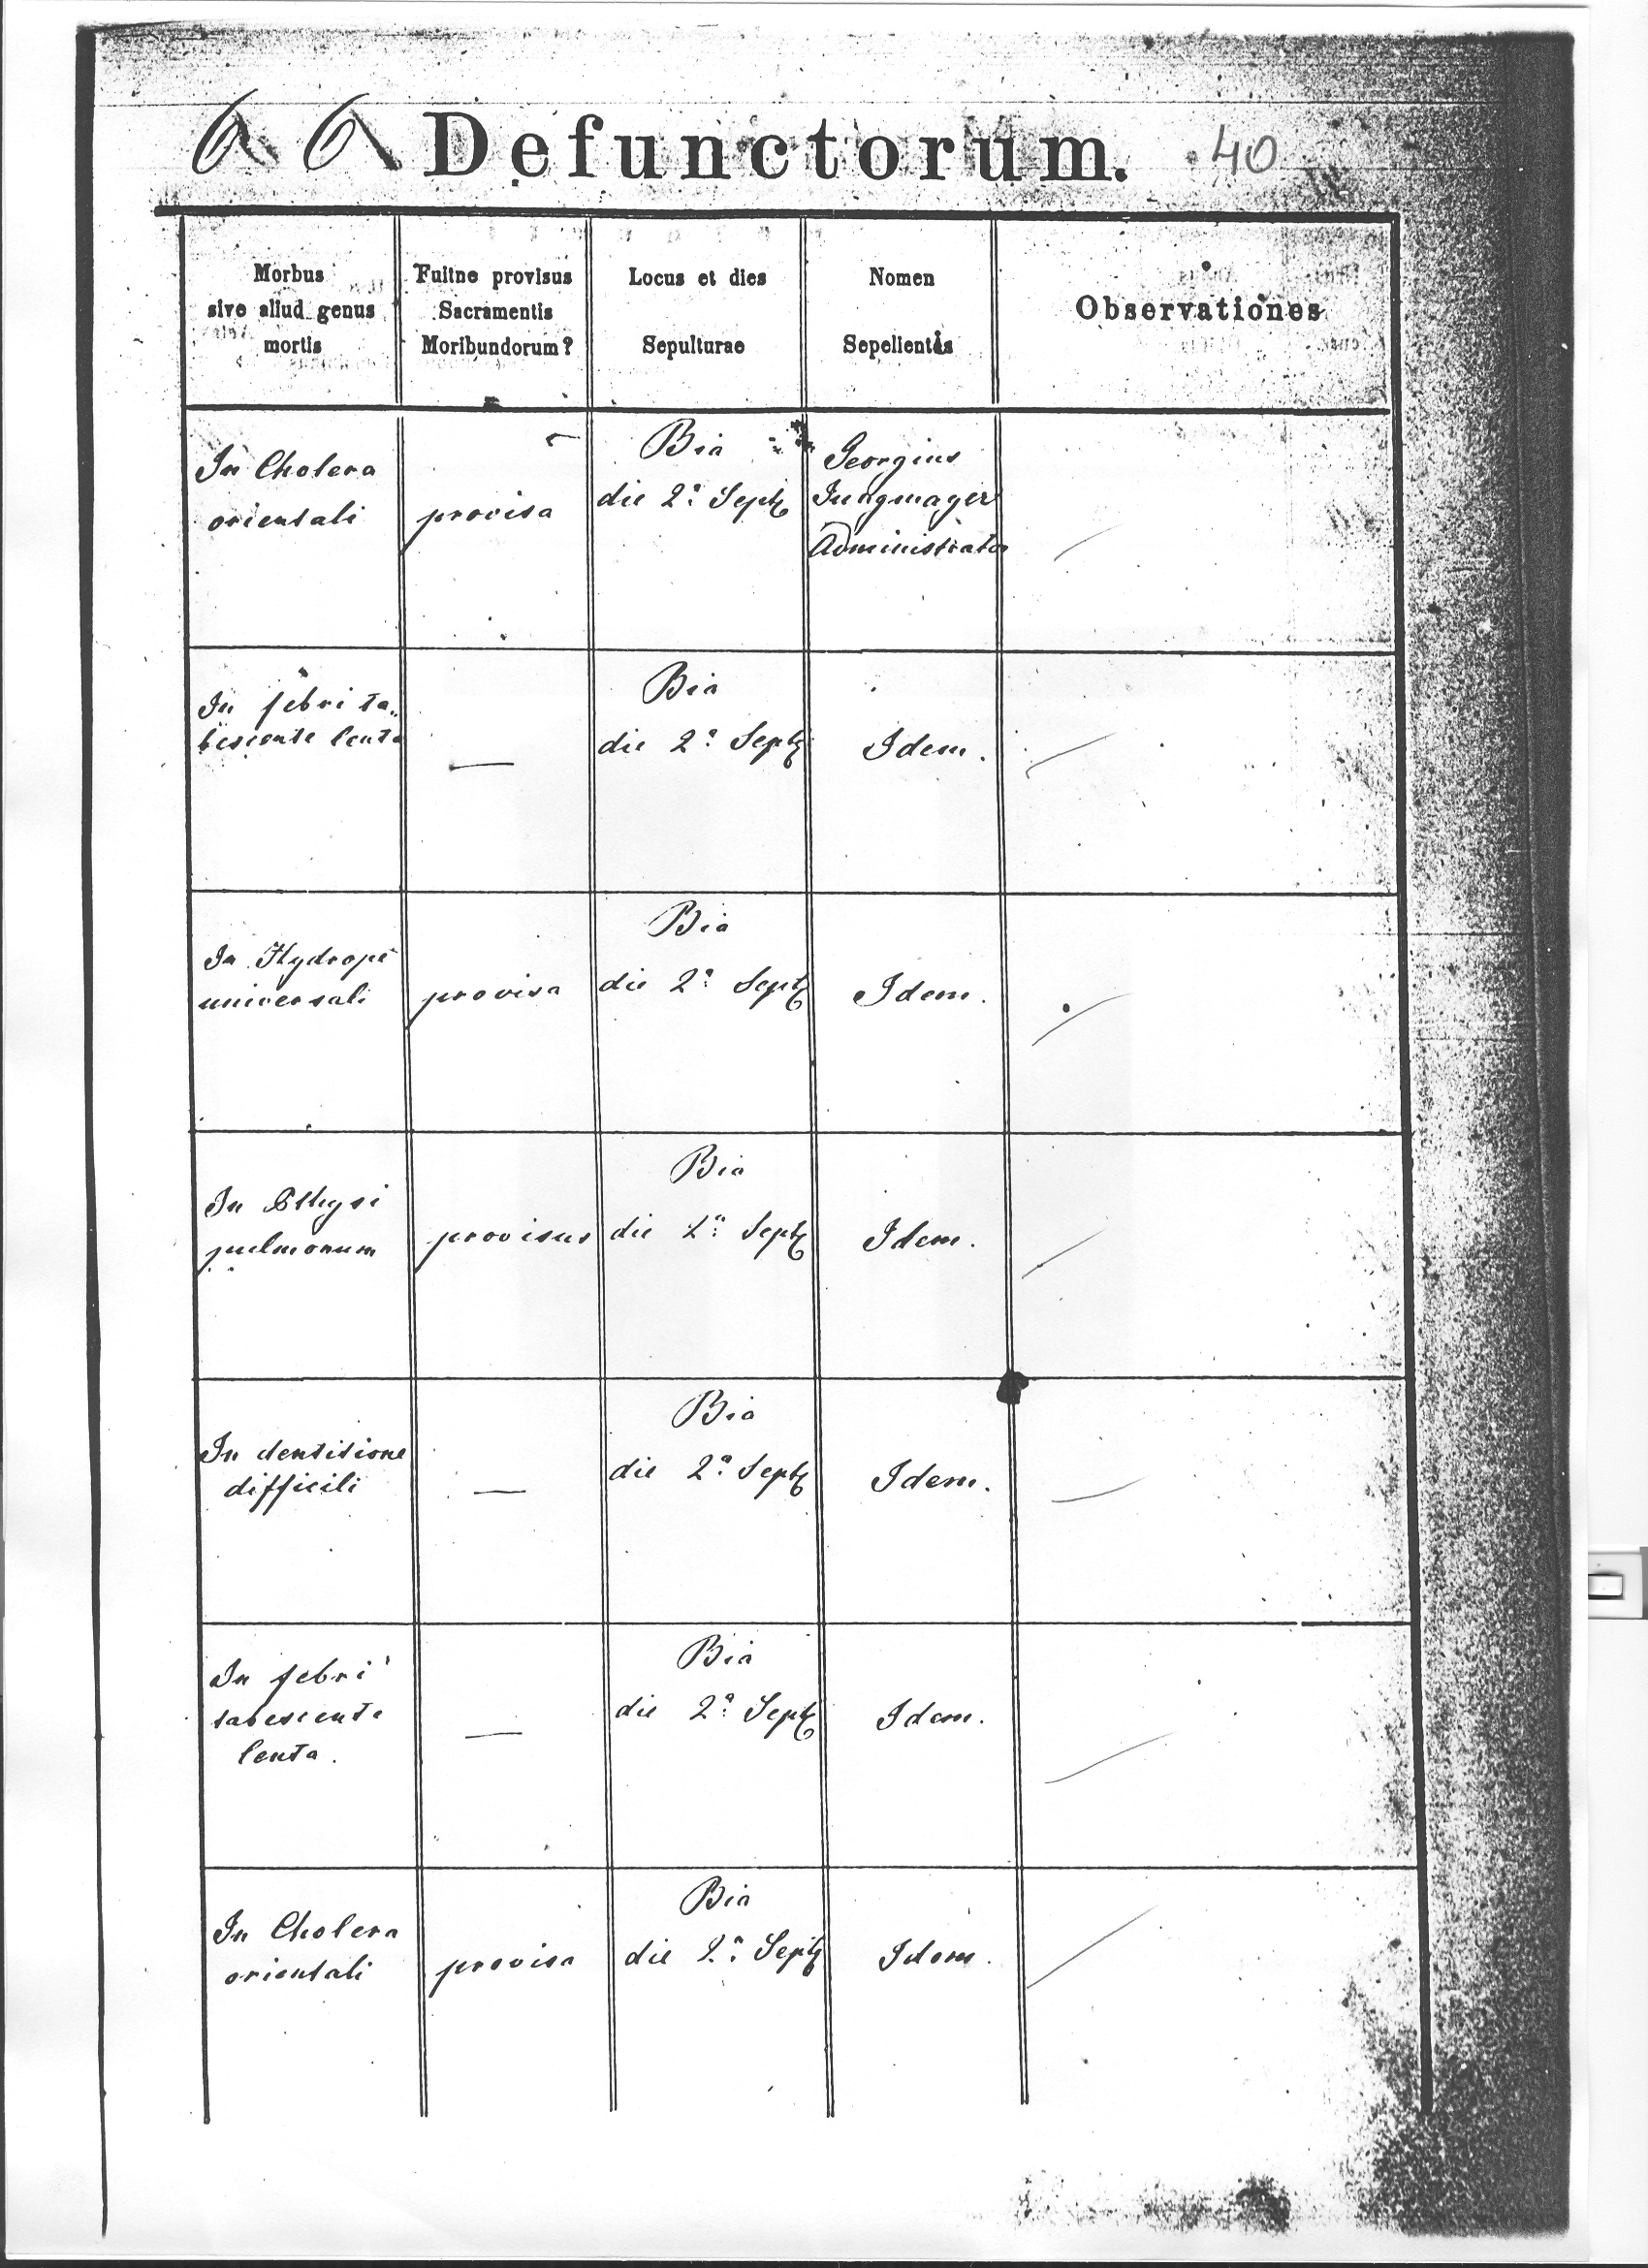 Defunctorum. 40
Morbus
sive aliud genus
mortis
Fuitne provisus
Sacramentis
Moribundorum?
Locus et dies
Sepulturae
Nomen
Sepelientis
Observationes
In Cholera
orientali
provisa
Bia
die 2a Sept
Georgius
Jungmayer
Administrator
In febri ta„
bescente lenta
—
Bia
die 2a Sept
Idem.
In Hydrope
universali
provisa
Bia
die 2a Sept
Idem.
In Pthysi
pulmonum
provisus
Bia
die 2a Sept
Idem.
In dentitione
difficili
—
Bia
die 2a Sept
Idem.
In febri
tabescente
lenta.
—
Bia
die 2a Sept
Idem.
In Cholera
orientali
provisa
Bia
die 2a Sept
Idem.